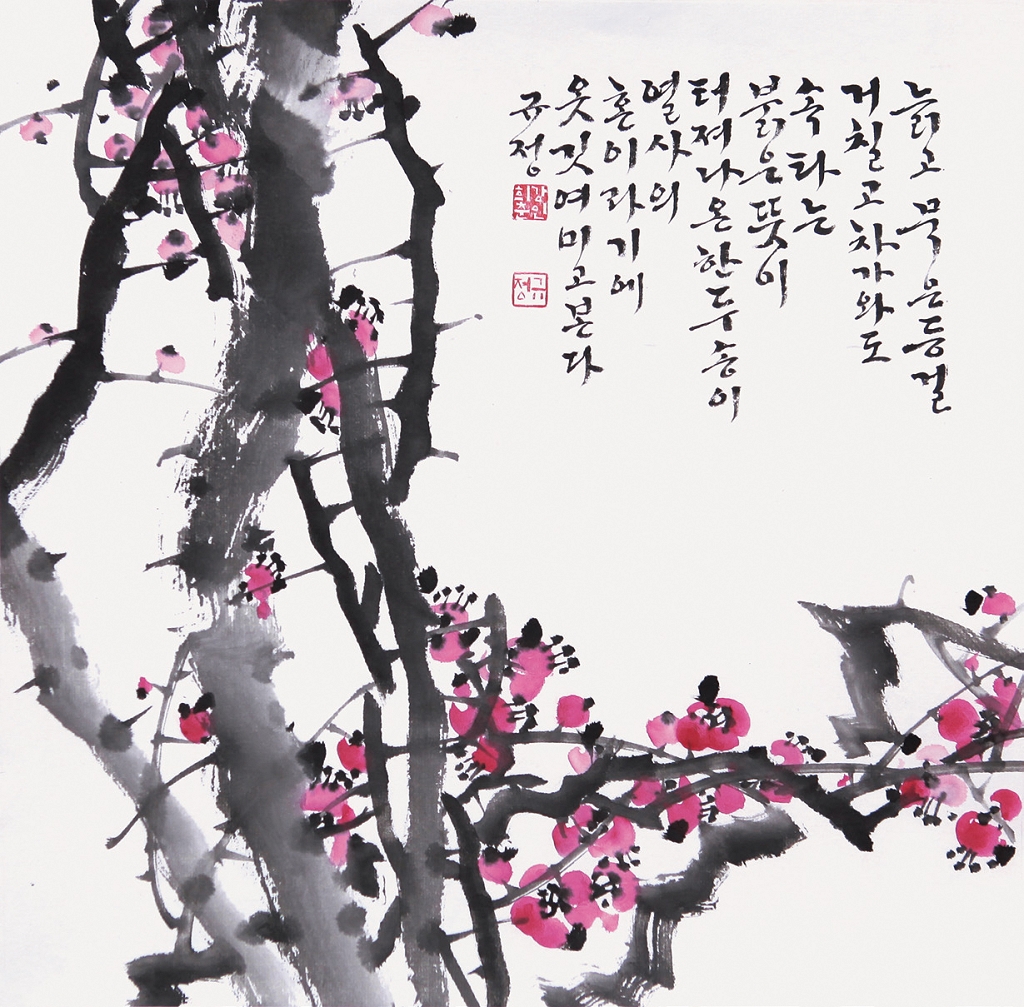 늙고 묵은 등걸
거칠고 차가와도
속 타는
붉은 뜻이
터져 나온 한두 송이
열사의
혼이라기에
옷깃 여미고 본다
규정
규정